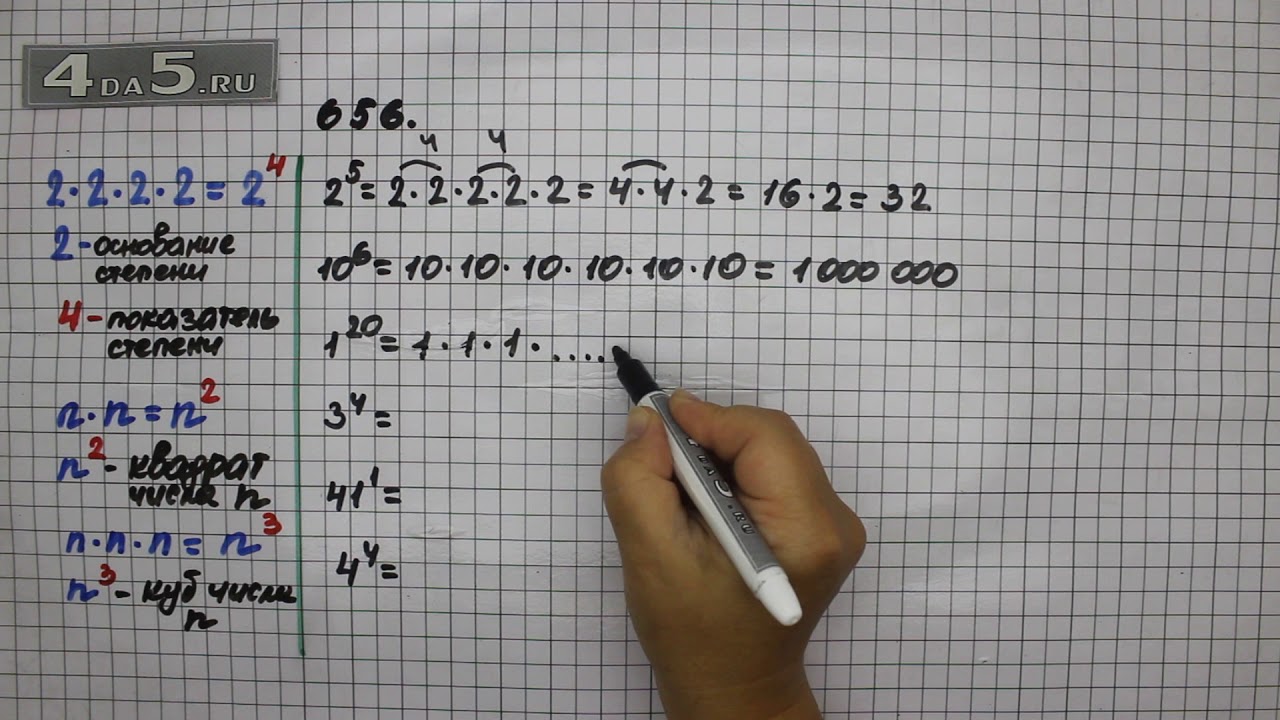 4DA5.RU
656.
2·2·2·2=2⁴
2-основание
степени
4-показатель
степени
n·n=n²
n²-квадрат
числа n
n·n·n=n³
n³-куб числа
n
4 4
2⁵=2·2·2·2·2=4·4·2=16·2=32
10⁶=10·10·10·10·10·10=1000 000
1²⁰=1·1·1·.....
3⁴=
41¹=
4⁴=